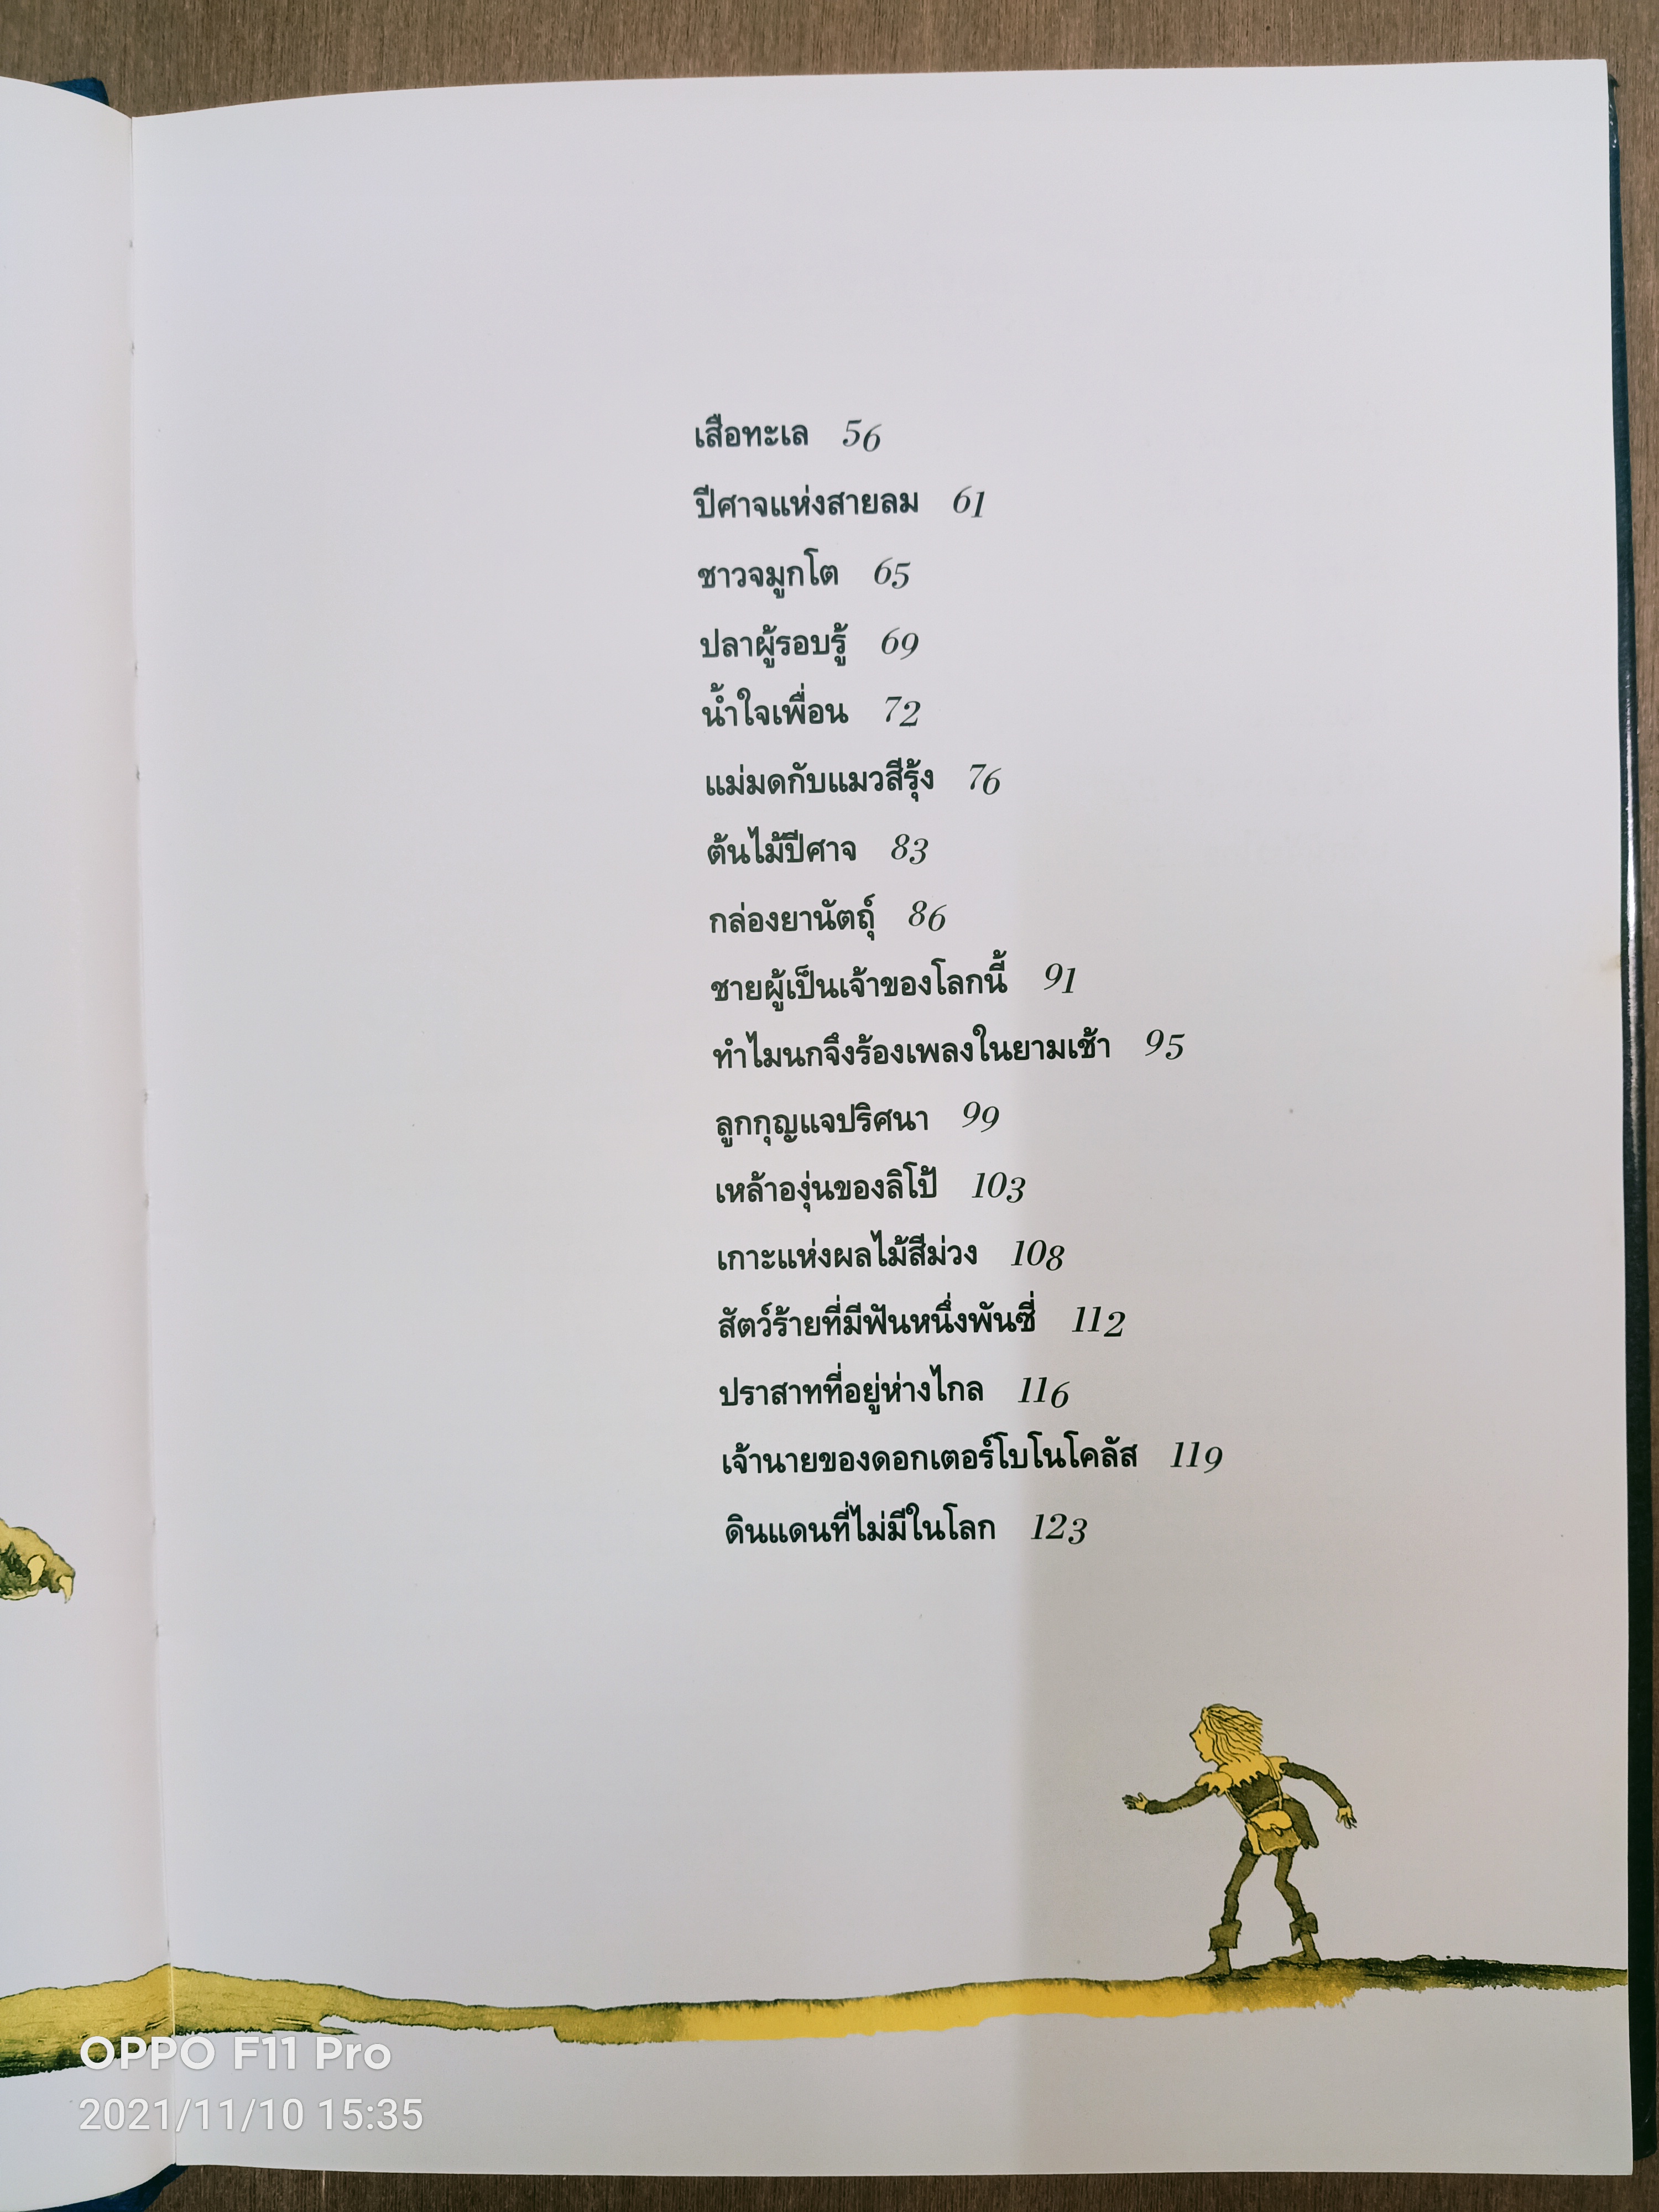 เสือทะเล 56
ปีศาจแห่งสายลม 61
ชาวจมูกโต 65
ปลาผู้รอบรู้ 69
น้ำใจเพื่อน 72
แม่มดกับแมวสีรุ้ง 76
ต้นไม้ปีศาจ 83
กล่องยานัตถุ์ 86
ชายผู้เป็นเจ้าของโลกนี้ 91
ทำไมนกจึงร้องเพลงในยามเช้า 95
ลูกกุญแจปริศนา 99
เหล้าองุ่นของลิโป้ 103
เกาะแห่งผลไม้สีม่วง 108
สัตว์ร้ายที่มีฟันหนึ่งพันซี่ 112
ปราสาทที่อยู่ห่างไกล 116
เจ้านายของดอกเตอร์โบโนโคลัส 119
ดินแดนที่ไม่มีในโลก 123
OPPO F11 Pro
2021/11/10 15:35